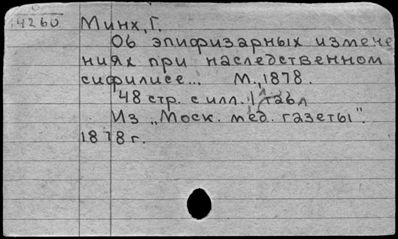 14260 Минх, Г.
Об эпифизарных измене
ниях при наследственном
сифилисе... М., 1878.
48 стр. с илл. 1 табл
Из „Моск. мед. газеты".
1878 г.